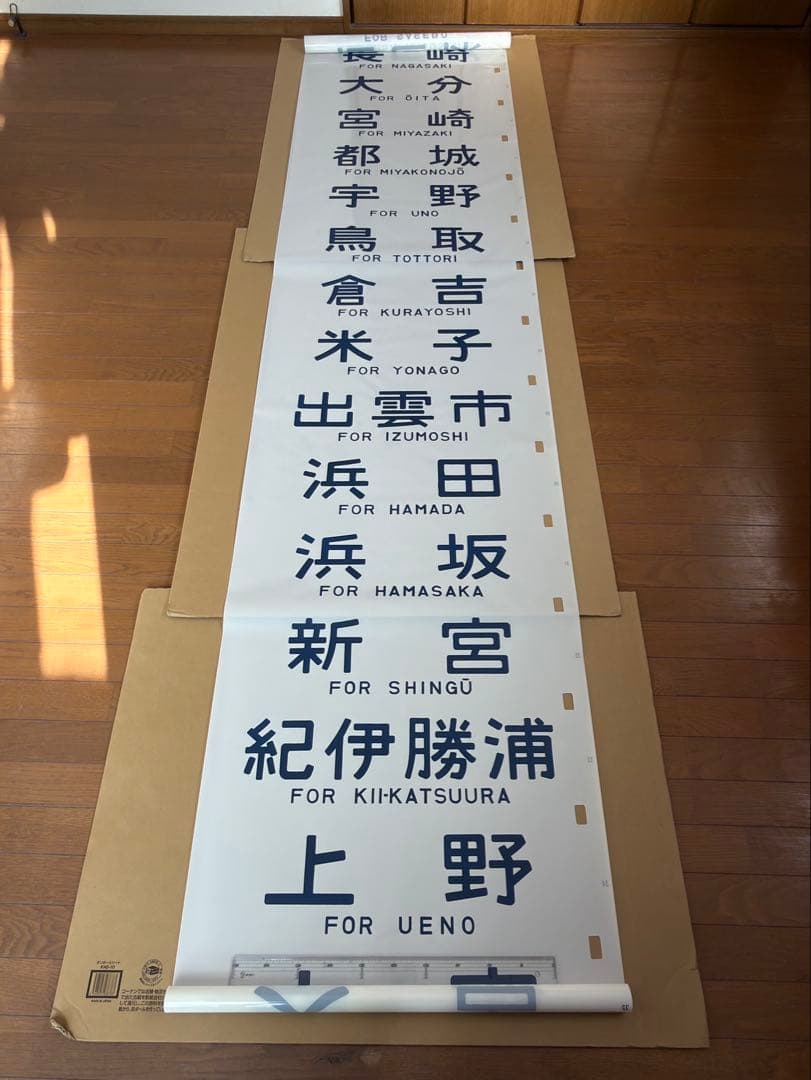 FOR SASEBO
長崎
FOR NAGASAKI
大分
FOR ŌITA
宮崎
FOR MIYAZAKI
都城
FOR MIYAKONOJŌ
宇野
FOR UNO
鳥取
FOR TOTTORI
倉吉
FOR KURAYOSHI
米子
FOR YONAGO
出雲市
FOR IZUMOSHI
浜田
FOR HAMADA
浜坂
FOR HAMASAKA
新宮
FOR SHINGŪ
紀伊勝浦
FOR KII-KATSUURA
上野
FOR UENO
35